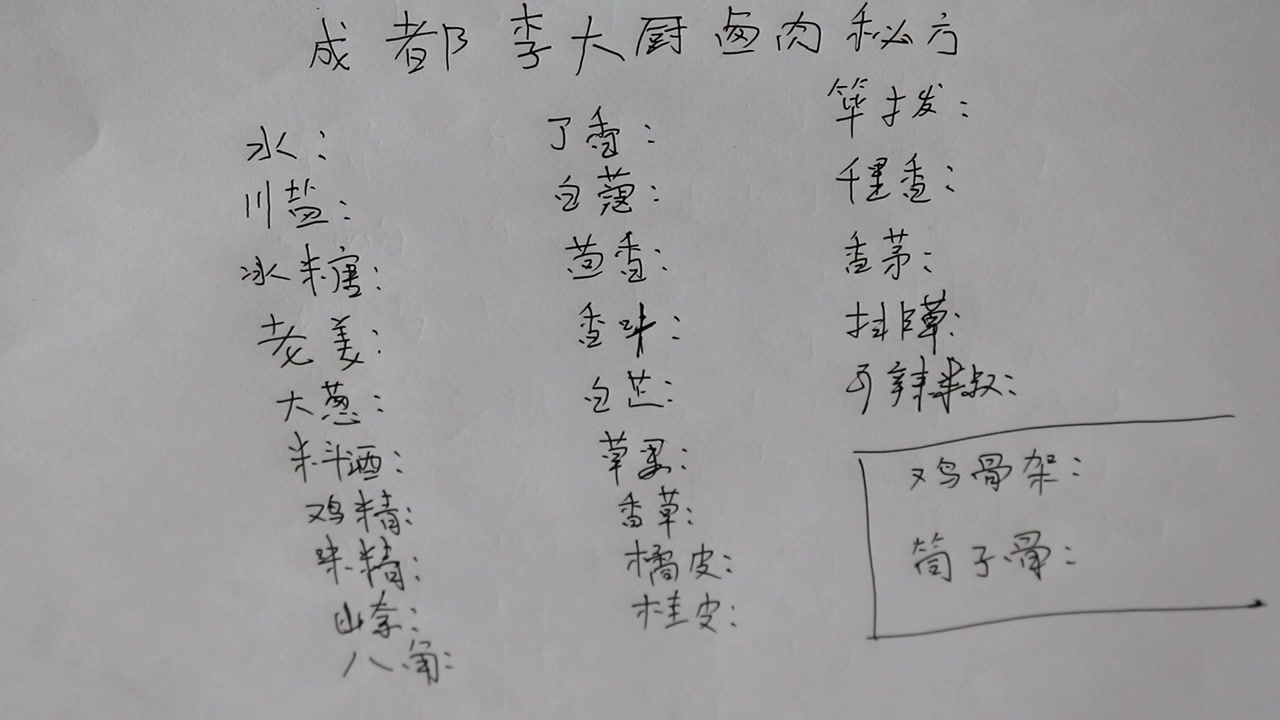 成都李大厨卤肉秘方
水：
川盐：
冰糖：
老姜：
大葱：
料酒：
鸡精：
味精：
山奈：
八角：
丁香：
白蔻：
茴香：
香叶：
白芷：
草果：
香草：
橘皮：
桂皮：
荜拨：
千里香：
香茅：
排草：
干辣椒：
鸡骨架：
筒子骨：